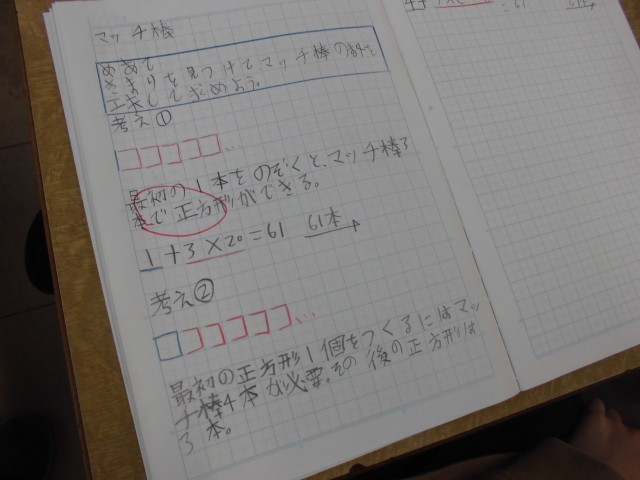 マッチ棒
めあて
きまりを見つけてマッチ棒の数を
工夫して求めよう。
考え①
…
最初の1本をのぞくと、マッチ棒3
本で正方形ができる。
1+3×20=61 61本
考え②
…
最初の正方形1個をつくるにはマッ
チ棒4本が必要。その後の正方形は
3本。